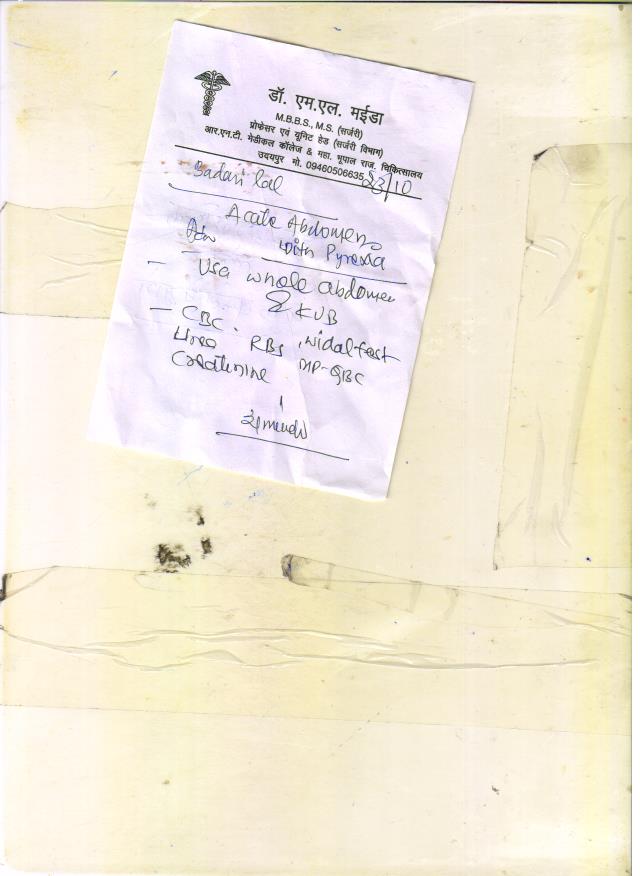 डॉ. एम.एल. मईडा
M.B.B.S., M.S. (सर्जरी)
प्रोफेसर एवं यूनिट हेड (सर्जरी विभाग)
आर.एन.टी. मेडीकल कॉलेज & महा. भूपाल राज. चिकित्सालय
उदयपुर मो. 09460506635
23/10
Badari lal
Acute Abdomen
Adv with Pyrexia
- USG whole abdomen
& KUB
- CBC.
Urea RBS, widal test
Creatinine MP-QBC